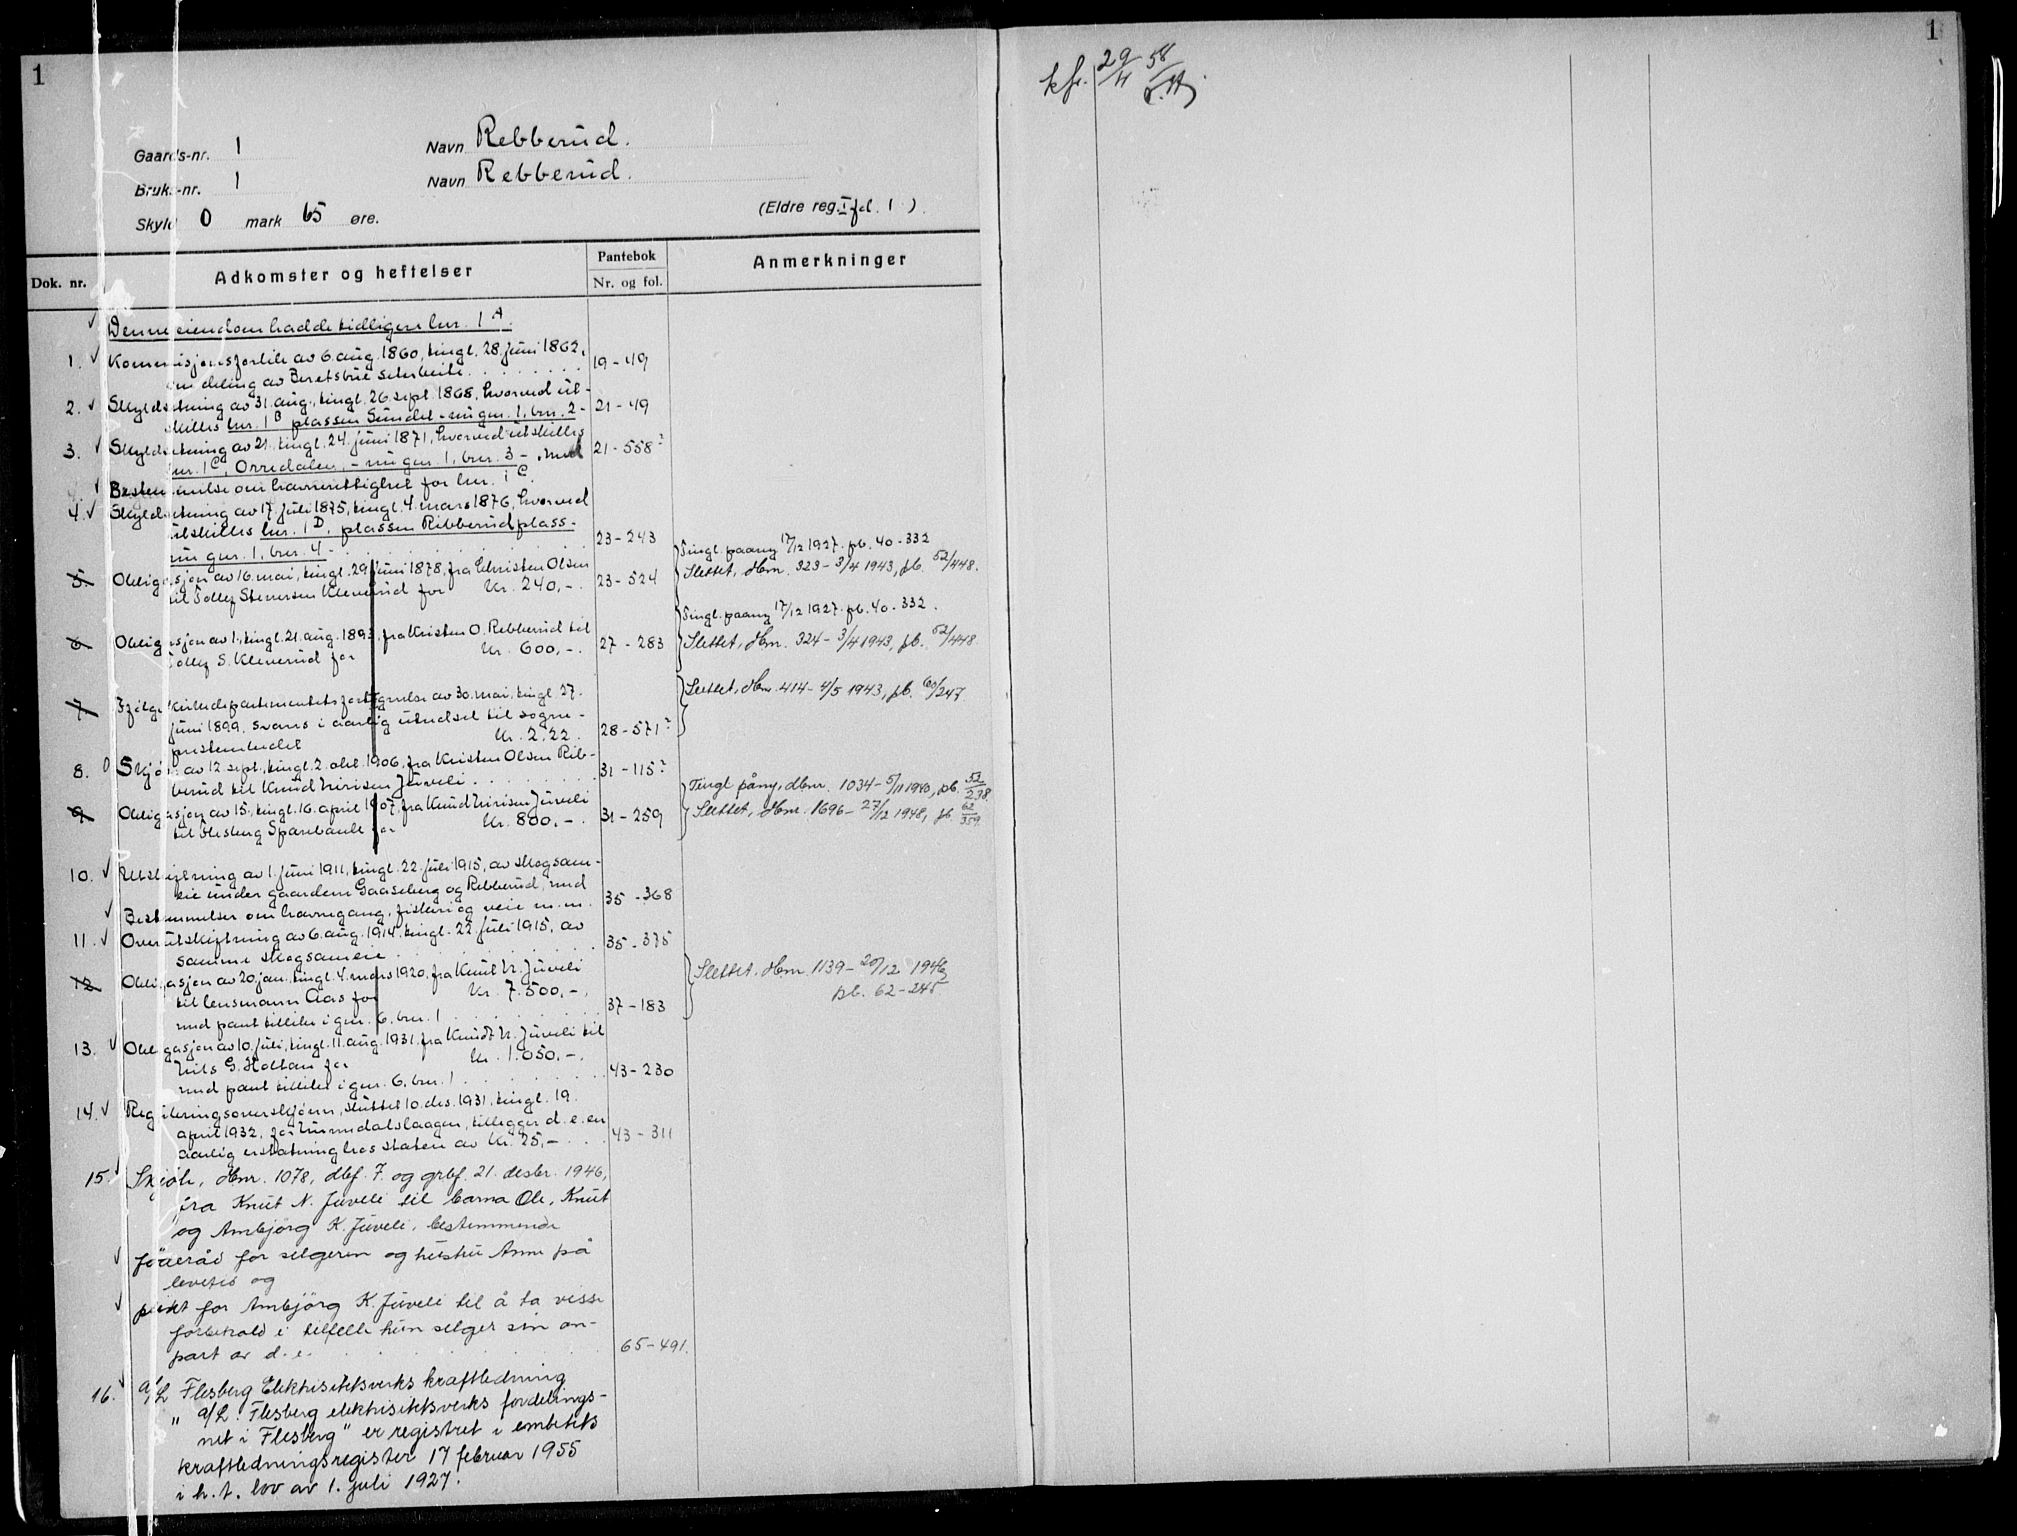 1
1
kfr. 29/11 58
Gaards-nr. 1 Navn Rebberud.
Bruks-nr. 1 Navn Rebberud.
Skyld 0 mark 65 øre. (Eldre reg. I fol. 1 ).
Dok. nr. Adkomster og heftelser Pantebok Nr. og fol. Anmerkninger
Denne eiendom hadde tidligere lnr. 1 A.
1. Kommisjonsforlik av 6. aug. 1860, tingl. 28. juni 1862,
om deling av seterbeite. 19-49
2. Skyldsetning av 31. aug., tingl. 26. sept. 1868, hvorved ut-
skilles lnr. 1 B plassen Sundet - nu gnr. 1, bnr. 2 - 21-49
3. Skyldsetning av 21., tingl. 24. juni 1871, hvorved utskilles
lnr. 1 C, Orredalen, - nu gnr. 1, bnr. 3 -, med 21-558
Bestemmelse om havnerettighet for lnr. 1 C.
4. Skyldsetning av 17. juli 1875, tingl. 4. mars 1876, hvorved
utskilles lnr. 1 D, plassen Ribberudplass -
nu gnr. 1, bnr. 4 - 23-243
5 Obligasjon av 16. mai, tingl. 29. juni 1878, fra Christen Olsen
til Tollef Steversen Kleverud for Kr. 240,-. 23-524
Tingl. paany 17/12 1927. pb. 40-332
Slettet, dbnr. 323 - 3/4 1943, pb. 52/448.
6 Obligasjon av 1., tingl. 21. aug. 1893, fra Kristen O. Rebberud til
Tollef S. Kleverud for Kr. 600,-. 27-283
Tingl. paany 17/12 1927. pb. 40-332.
Slettet, dbnr. 324 - 3/4 1943, pb. 52/448
7 Ifølge Kirkedepartementets fortegnelse av 30. mai, tingl. 27.
juni 1899, svares i aarlig utredsel til sogne-
presteembedet Kr. 2.22. 28-571
Slettet, dbnr. 414 - 4/5 1943, pb. 60/247
8. Skjøte av 12. sept., tingl. 2. okt. 1906, fra Kristen Olsen Rib-
berud til Knud Nirisen Juveli 31-115
9 Obligasjon av 15., tingl. 16. april 1907, fra Knud Nirisen Juveli
til Flesberg Sparebank for Kr. 800,-. 31-259
Tingl. påny, dbnr. 1034 - 5/11 1940, pb. 52/238.
Slettet, dbnr. 1696 - 27/12 1948, pb. 62/359.
10. Utskiftning av 1. juni 1911, tingl. 22. juli 1915, av skogsam-
eie under gaardene Gaaseberg og Rebberud, med 35-368
Bestemmelser om havnegang, fiskeri og veie m.m.
11. Overutskiftning av 6. aug. 1914, tingl. 22. juli 1915, av
samme skogsameie 35-375
12 Obligasjon av 20. jan., tingl. 4. mars 1920, fra Knut N. Juveli
til lensmann Aas for Kr. 7.500,-,
med pant tillike i gnr. 6, bnr. 1 37-183
Slettet, dbnr. 1139 - 20/12 1946
pb. 62-245
13. Obligasjon av 10. juli, tingl. 11. aug. 1931, fra Knudt N. Juveli til
Nils G. Holtan for Kr. 1.050,-.
med pant tillike i gnr. 6, bnr. 1 43-230
14. Reguleringsoverskjønn, sluttet 10. des. 1931, tingl. 19.
april 1932, for Numedalslaagen, tillegger d. e. en
aarlig erstatning hos staten av Kr. 25,- 43-311
15. Skjøte, dbnr. 1078, dbf. 7. og grbf. 21. desbr. 1946,
fra Knut N. Juveli til barna Ole, Knut
og Ambjörg K. Juveli, bestemmende
föderåd for selgeren og hustru Anne på
levetid og
plikt for Ambjörg K. Juveli til å ta visse
forbehold i tilfelle hun selger sin an-
part av d. e. 65-491.
16. A/L Flesberg Elektrisitetsverks kraftledning
" A/L. Flesberg elektrisitetsverks fordelings-
net i Flesberg" er registret i embetets
kraftledningsregister 17 februar 1955
i h. t. lov av 1. juli 1927.